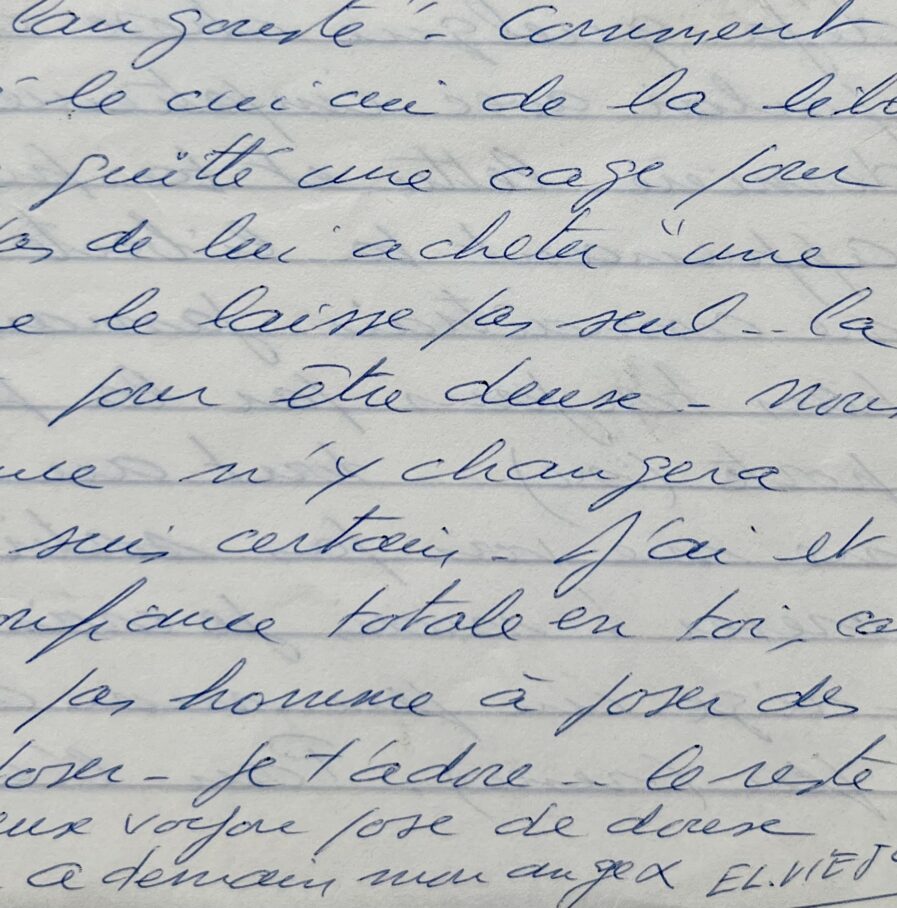 langouste". Comment
le cui cui de la libe
quitté une cage pour
pas de lui acheter "une
e le laisse pas seul.. la
pour être deux - nous
nce n'y changera
suis certain - J'ai et
onfiance totale en toi, ca
pas homme à poser des
poser - je t'adore .. le reste
eux voyou pose de douse
a demain mon ange EL.VIEJO